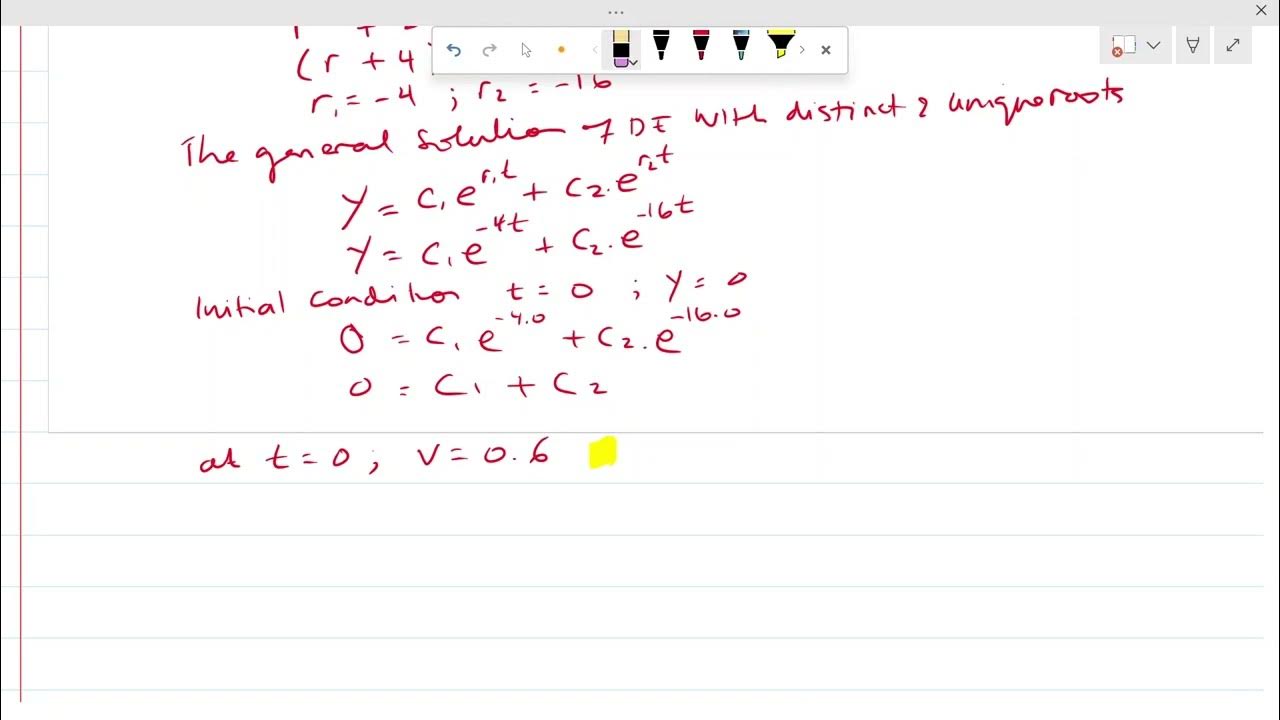 (r + 4
r₁ = -4 ; r₂ = -16
The general solution of DE with distinct & unique roots
y = c₁e^(r₁t) + c₂.e^(r₂t)
y = c₁e^(-4t) + c₂.e^(-16t)
Initial condition t = 0 ; y = 0
0 = c₁e^(-4.0) + c₂.e^(-16.0)
0 = c₁ + c₂
at t = 0 ; v = 0.6